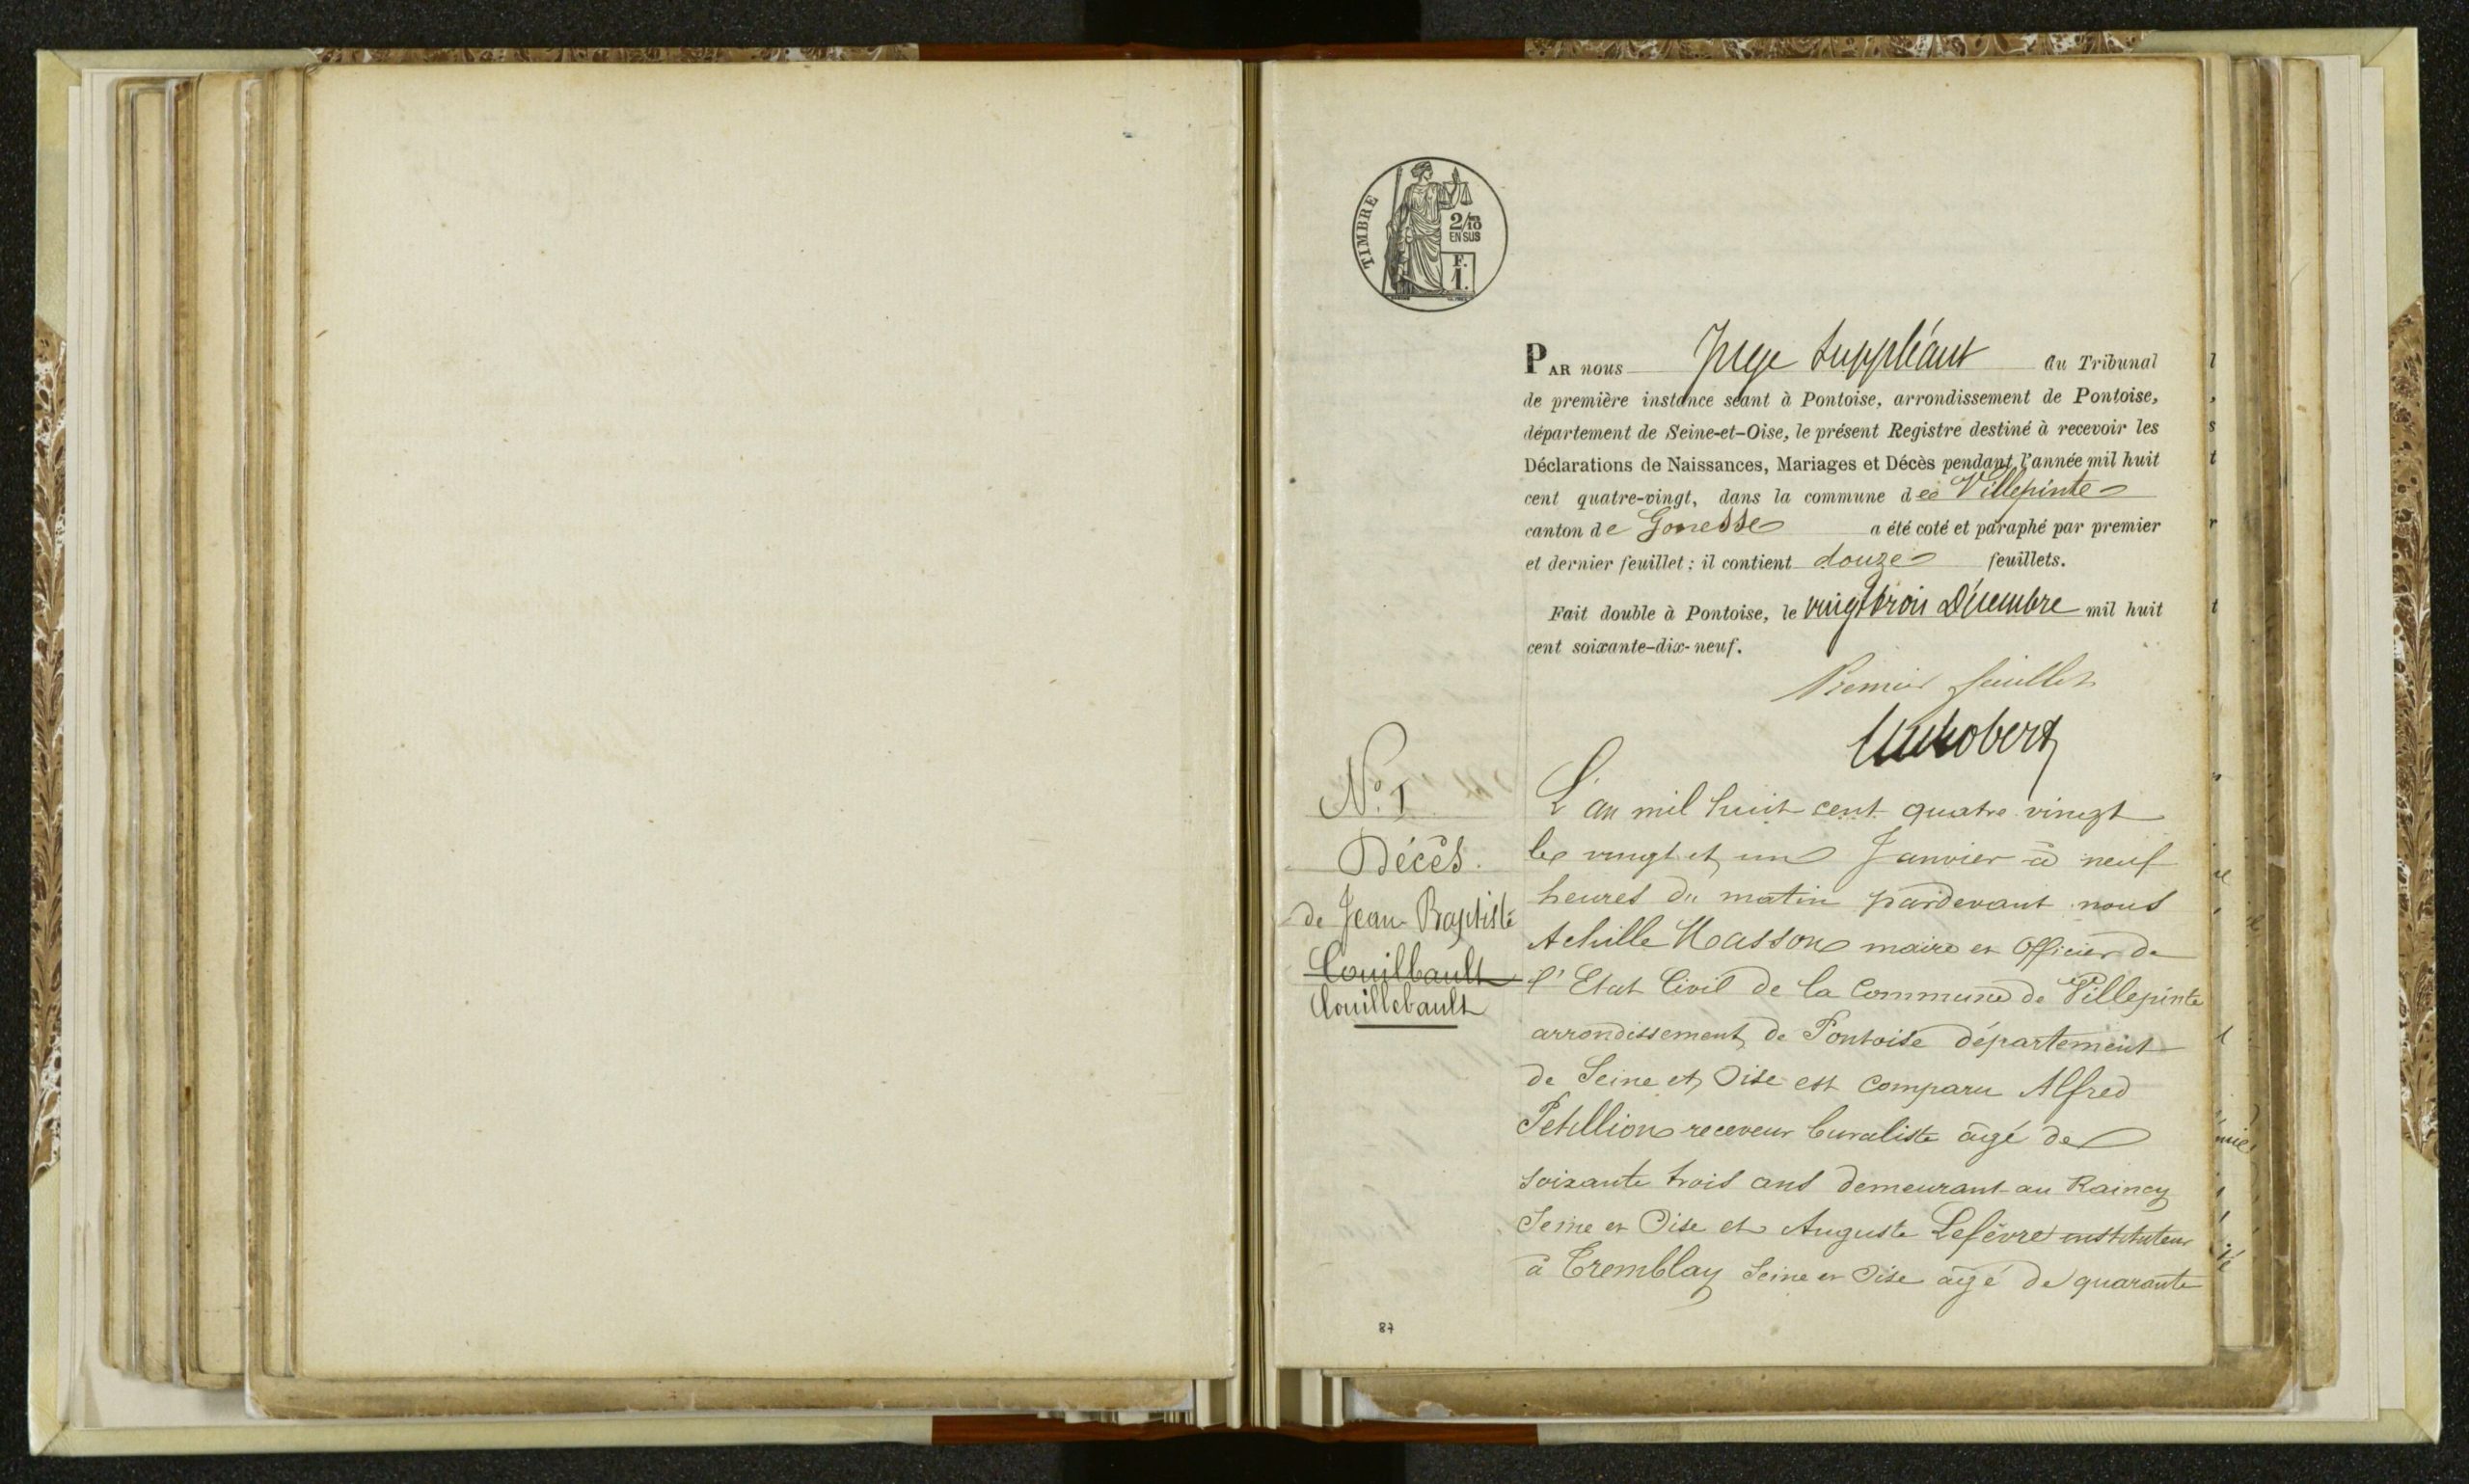 TIMBRE
2/10
EN SUS
F.
1.
PAR nous Juge Suppléant du Tribunal
de première instance séant à Pontoise, arrondissement de Pontoise,
département de Seine-et-Oise, le présent Registre destiné à recevoir les
Déclarations de Naissances, Mariages et Décès pendant l'année mil huit
cent quatre-vingt, dans la commune de Villepinte
canton de Gonesse a été coté et paraphé par premier
et dernier feuillet : il contient douze feuillets.
Fait double à Pontoise, le vingt trois Décembre mil huit
cent soixante-dix-neuf.
Premier feuillet
N° 1
Décès
de Jean-Baptiste
Couilbault
Couillebault
L'an mil huit cent quatre vingt
le vingt et un Janvier à neuf
heures du matin pardevant nous
Achille Masson maire et Officier de
l'Etat Civil de la Commune de Villepinte
arrondissement de Pontoise département
de Seine et Oise est comparu Alfred
Petillion receveur buraliste âgé de
soixante trois ans demeurant au Raincy
Seine et Oise et Auguste Lefèvre instituteur
à Tremblay Seine et Oise âgé de quarante
87